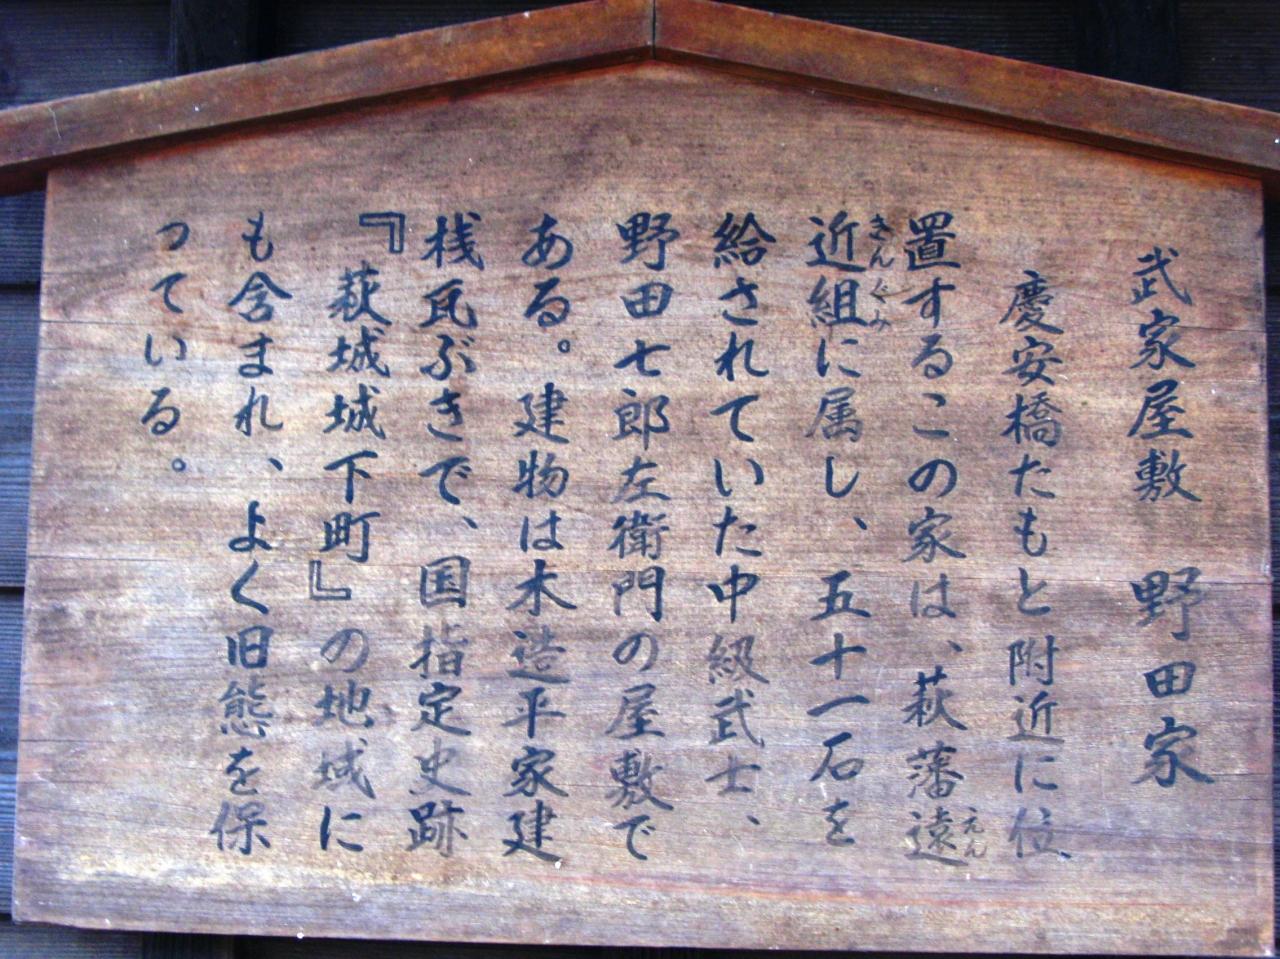 武家屋敷 野田家
慶安橋たもと附近に位
置するこの家は、萩藩遠
えん
近組に属し、五十一石を
きんぐみ
給されていた中級武士、
野田七郎左衛門の屋敷で
ある。建物は木造平家建
桟瓦ぶきで、国指定史跡
『萩城城下町』の地域に
も含まれ、よく旧態を保
っている。